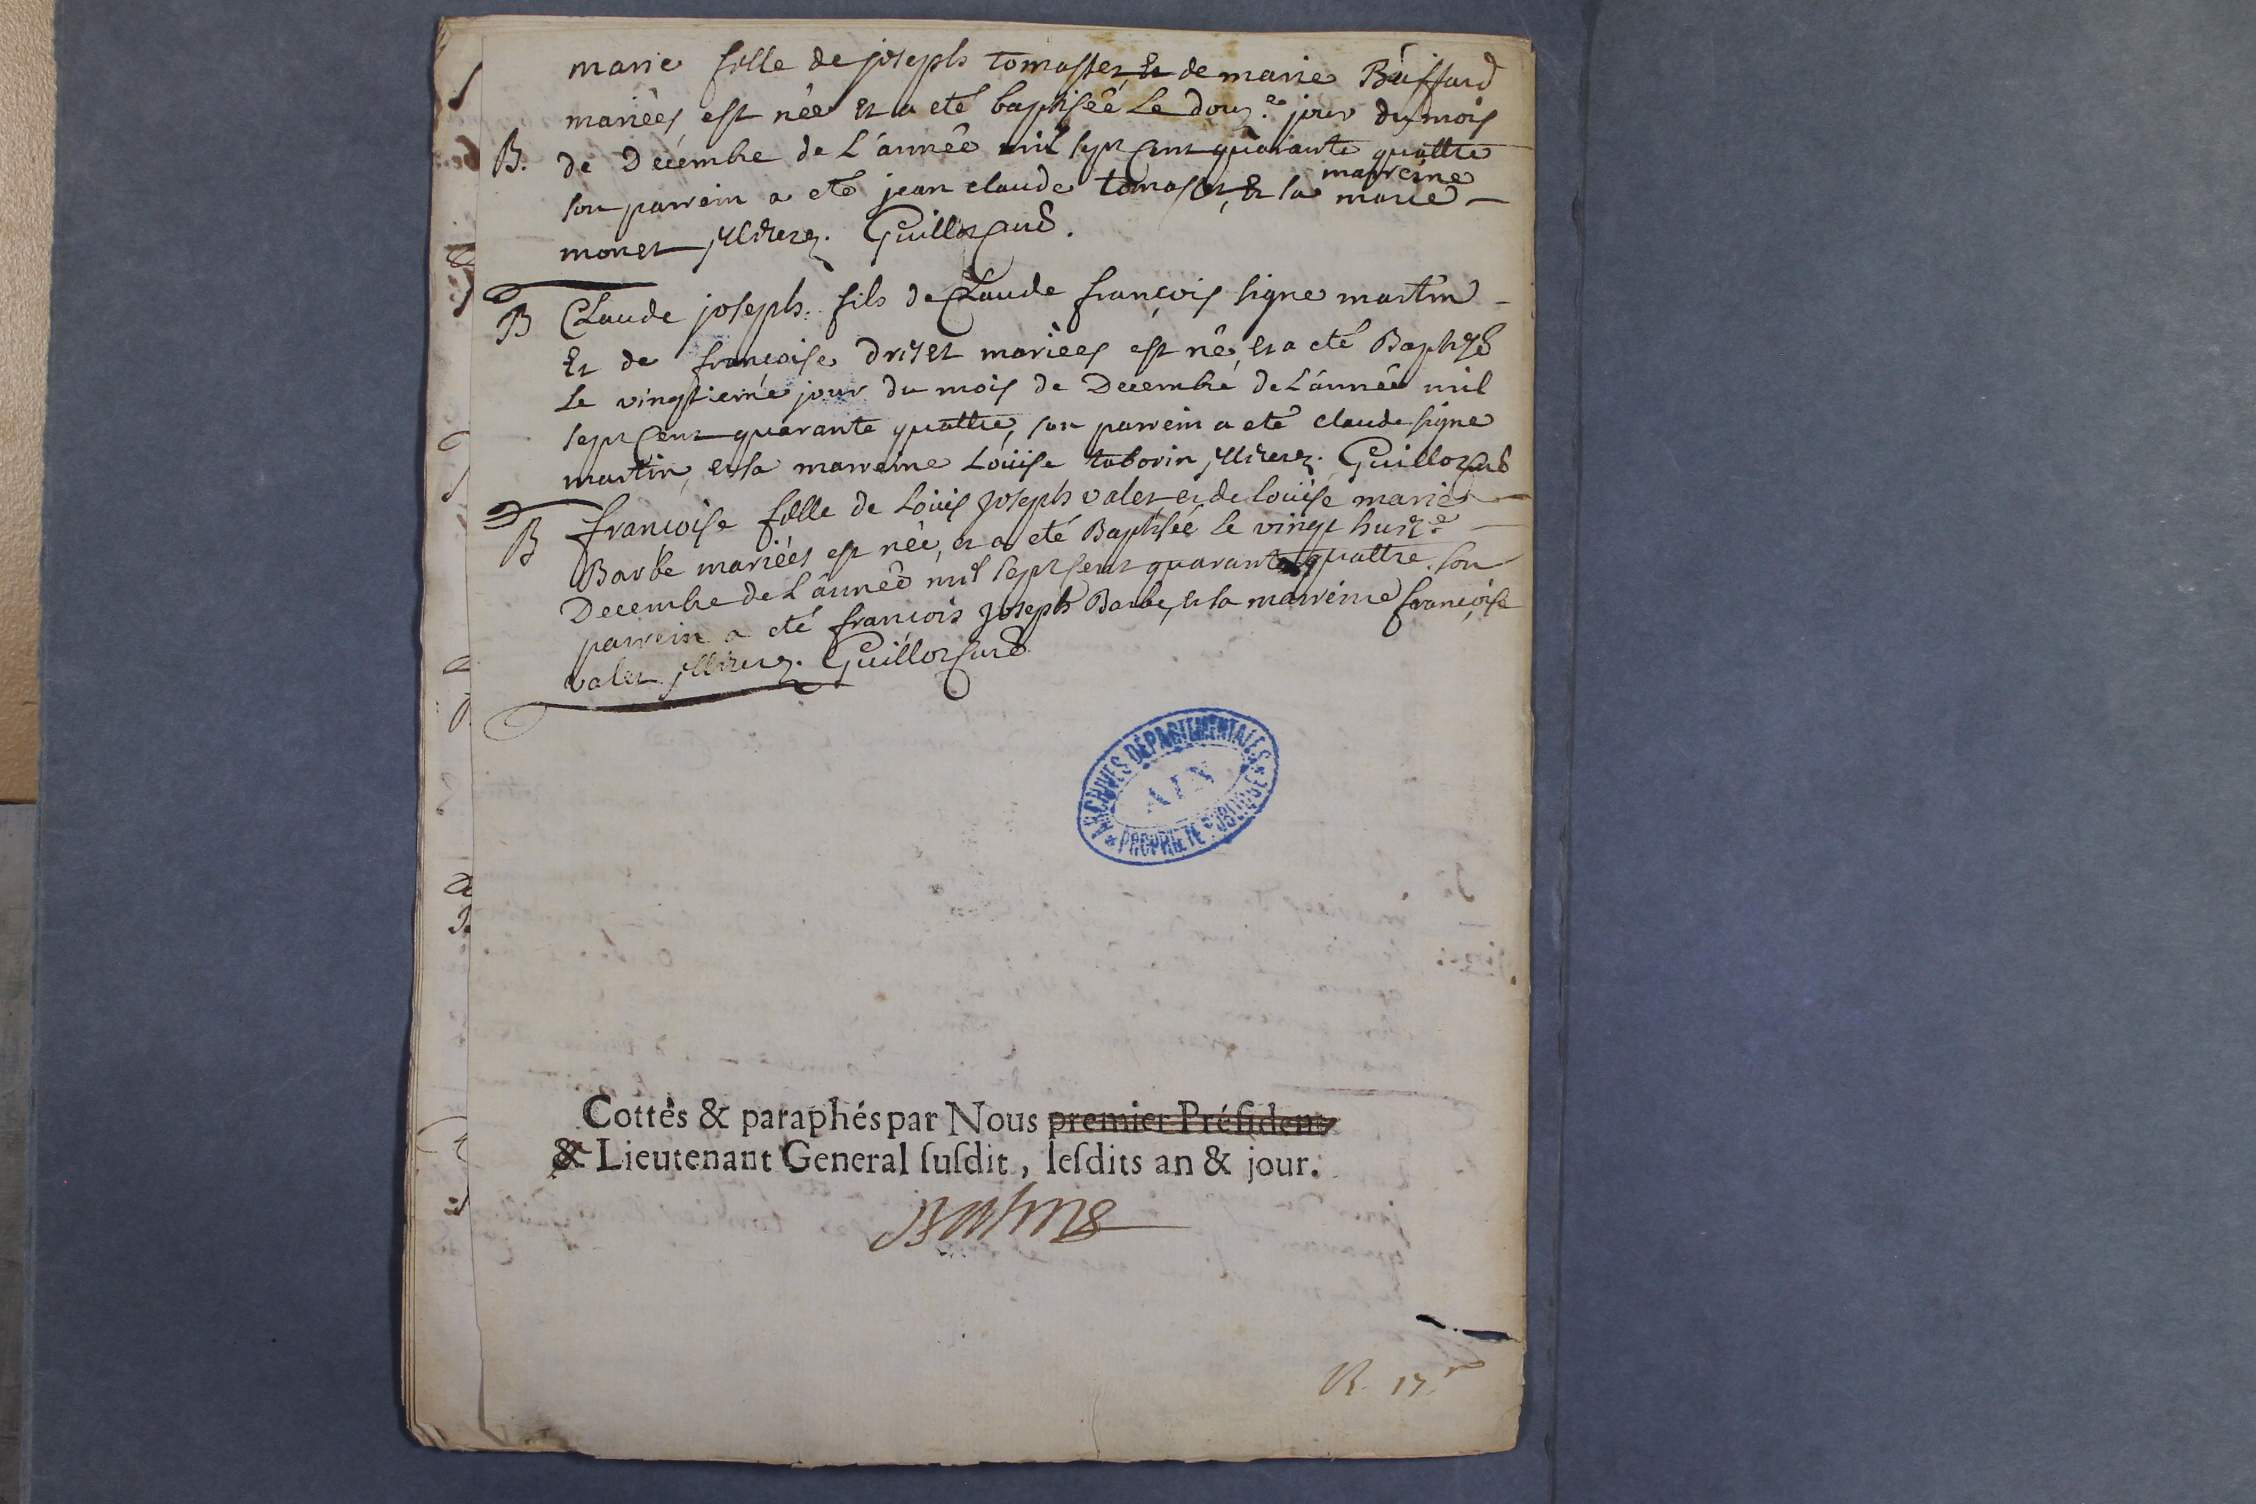 marie fille de joseph tomasset et de marie Buffard
mariées est née et a eté baptiséé Le douz.e jour du mois
B. de Decembre de L'année mil sept cent quarante quattre
marreine
son parrein a eté jean claude tomasset, et la marie
monet Guillot Curé.
B Claude joseph fils de Claude françois signe martin
et de françoise mariées est né, et a eté Baptisé
Le vingtieme jour du mois de Decembre de L'année mil
sept cent quarante quattre, son parrein a eté claude signe
martin, et sa marreine Loüise taborin Guillot Curé
B françoise fille de Loüis joseph valet et de loüise marie
Barbe mariées est née, et a eté Baptisée le vingt huit.e
Decembre de L'année mil sept cent quarante quattre. son
parrein a eté françois joseph Barbe, et sa marreine françoise
valet Guillot Curé
ARCHIVES DÉPARTEMENTALES
AIN
PROPRIÉTÉ PUBLIQUE
Cottés & paraphés par Nous premier Préſident
& Lieutenant General ſuſdit, leſdits an & jour.
R. 17.r